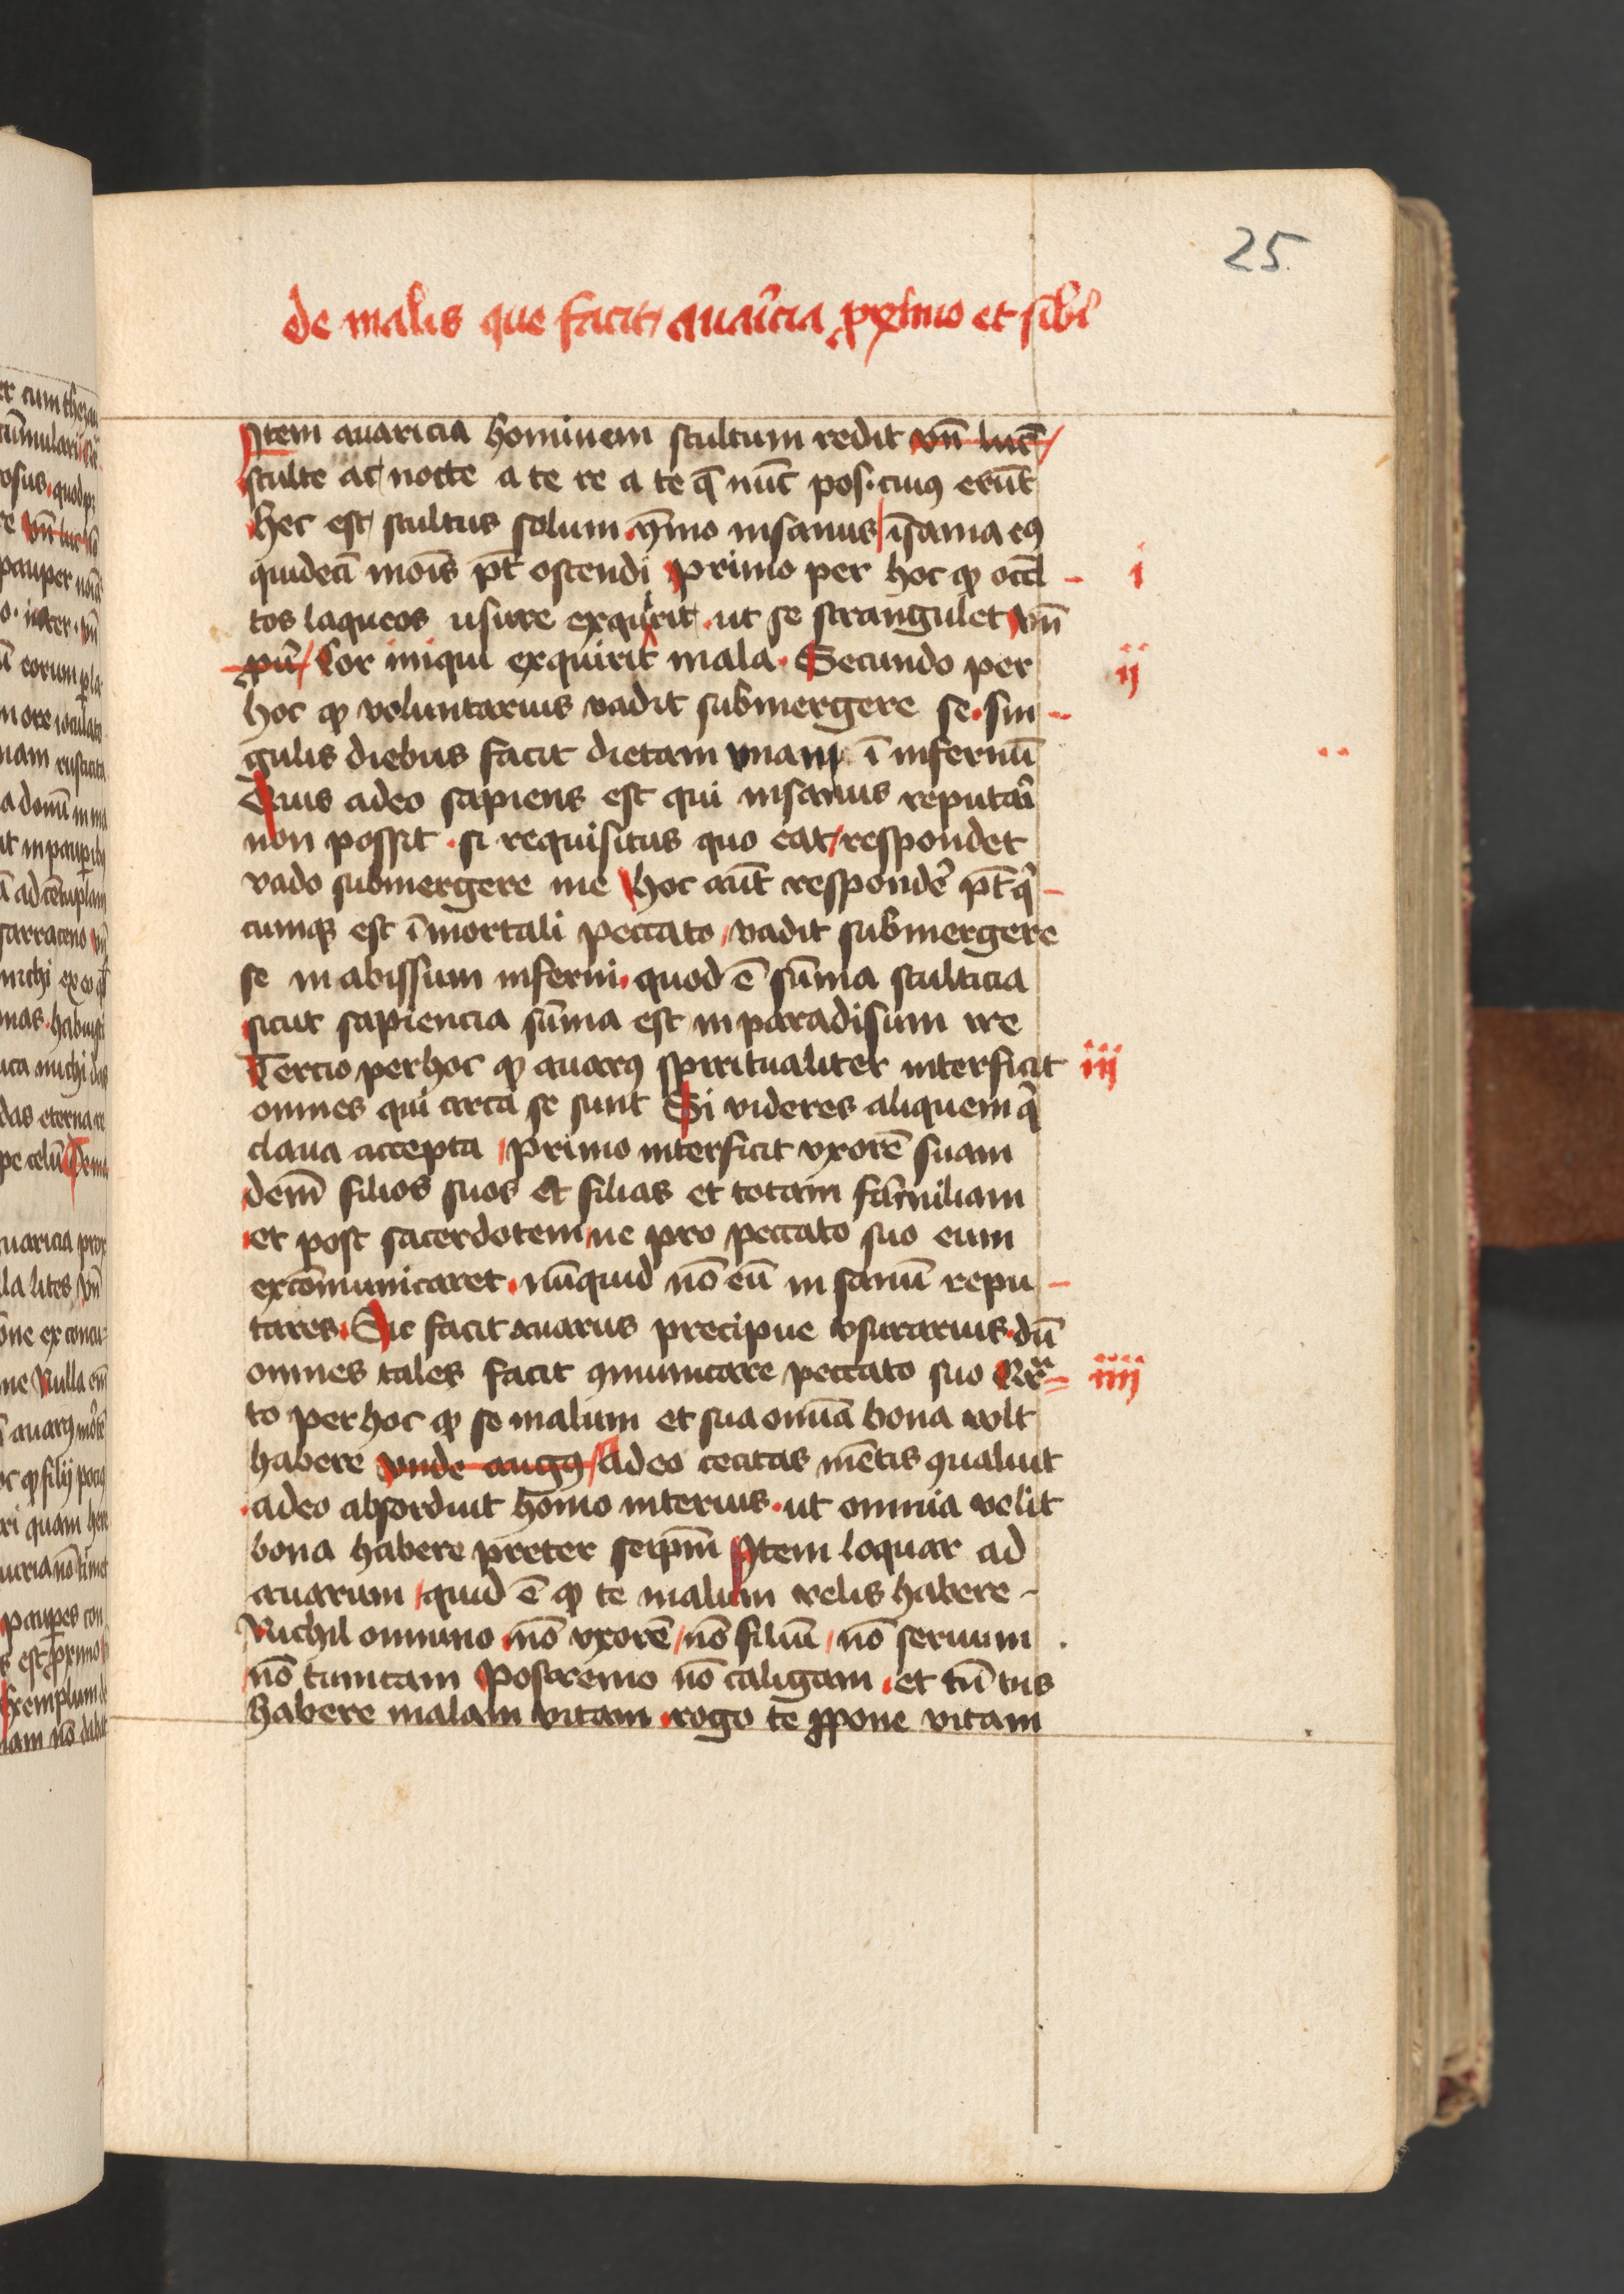 25
de malis que facit auaricia proximo et sibi
Item auaricia hominem stultum redit vn̄ luc̄
stulte ac nocte a te re a te q̄ nūc pos. cuiꝰ erūt
Hec est stultus solum ymo insanus īsania eiꝰ
quidecī mois pt̄ ostendi primo per hoc ꝙ occl̄ i
tos laqueos usure exquirit ut se strangulet vn̄
Cor iniqui exquirit mala Secundo per ii
hoc ꝙ voluntarius vadit submergere se. sin
gulis diebus facit dietam vnam ī infernū
Quis adeo sapiens est qui insanus reputari
non possit . si requisitus quo eat respondet
vado submergere me Hoc aūt respondē pt̄ q̄
cumqꝫ est ī mortali peccato vadit submergere
se in abissum inferni quod ē sūma stulticia
sicut sapiencia sūma est in paradisum ire
Tercio per hoc ꝙ auarꝰ spiritualiter interficit iii
omnes qui circa se sunt Si videres aliquem q̄
claua accepta primo interficit vxorē suam
dem̄ filios suos et filias et totam familiam
et post sacerdotem ne pro peccato suo eum
excōmunicaret . nūquid nō eū in sanū repu
tares. Sic facit auarus precipue vsurarius dū
omnes tales facit ꝯmunicare peccato suo Qr̄ iiii
to per hoc ꝙ se malum et sua omīa bona vult
habere vnde augꝰ Adeo cecitas mētis ꝯualuit
adeo absorduit homo interius . ut omnia velit
bona habere preter seipm̄ Item loquar ad
auarum quid ē ꝙ te malum velis habere
Nichil omnino nō vxorē nō filiū nō seruum
nō tunicam Postremo nō caligam . et tn̄ vis
habere malam vitam rogo te ꝓpone vitam